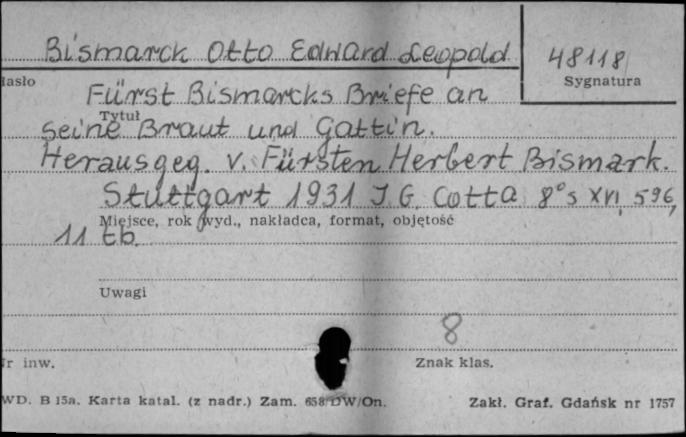 Bismarck Otto Edward Leopold
48118
Sygnatura
Hasło
Fürst Bismarcks Briefe an
Tytuł
seine Braut und Gattin.
Herausgeg. v. Fürsten Herbert Bismark.
Stuttgart 1931 J. G. Cotta 8° s XVI, 596,
Miejsce, rok wyd., nakładca, format, objętość
11 tb.
Uwagi
8
Nr inw.
Znak klas.
WD. B 15a. Karta katal. (z nadr.) Zam. 658/DW/On.
Zakł. Graf. Gdańsk nr 1757